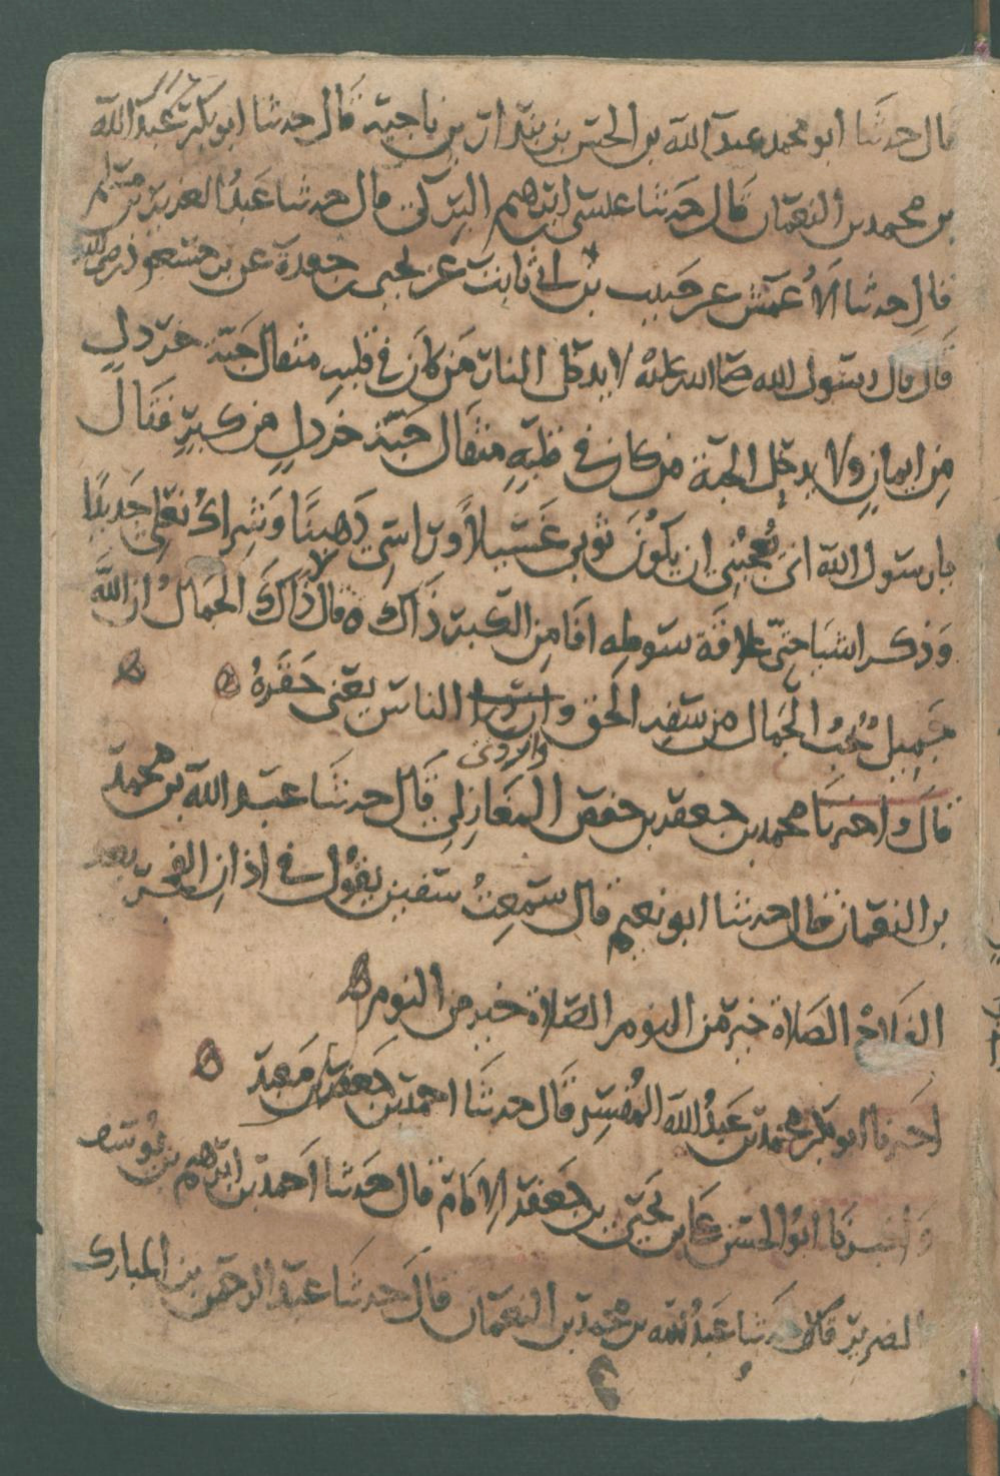 قال حدثنا ابو محمد عبد الله بن الحسن بن بندار بن ناجية قال حدثنا ابو بكر عبد الله
بن محمد بن النعمان قال حدثنا عيسى بن ابرهيم البركي قال حدثنا عبد العزيز بن مسلم
قال حدثنا الاعمش عن حبيب بن ابي ثابت عن يحيى بن جعدة عن بن مسعود رضي الله
قال قال رسول الله صلى الله عليه لا يدخل النار من كان في قلبه مثقال حبة خردل
من ايمان ولا يدخل الجنة من كان في قلبه مثقال حبة خردل من كبر فقال
يا رسول الله اني يعجبني ان يكون ثوبي غسيلا وراسي دهينا وشراك نعلي جديدا
وذكر اشيا حتى علاقة سوطه افمن الكبر ذاك قال لا ذاك الجمال ان الله
جميل يحب الجمال من سفه الحق وازدرا الناس يعني حقره
وازدرى
قال واخبرنا محمد بن جعفر بن حفص المغازلي قال حدثنا عبد الله بن محمد
بن النعمان قال حدثنا ابو نعيم قال سمعت سفين يقول في اذان الفجر بعد
الفلاح الصلاة خير من النوم الصلاة خير من النوم
اخبرنا ابو بكر محمد بن عبد الله المفسر قال حدثنا احمد بن جعفر بن معبد
واخبرنا ابو الحسن علي بن يحيى بن جعفر الامام قال حدثنا احمد بن ابرهيم بن يوسف
الضرير قالا حدثنا عبد الله بن محمد بن النعمان قال حدثنا عبد الرحمن بن المبارك